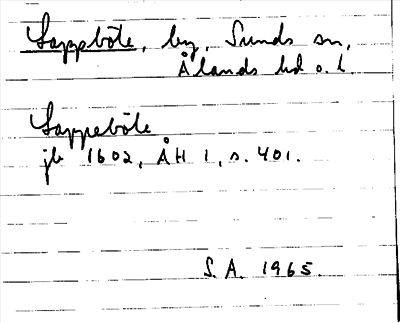 Lappböte, by, Sunds sn,
Ålands hd o. l.
Lappeböte
jb 1602, ÅH 1, s. 401.
S. A. 1965.